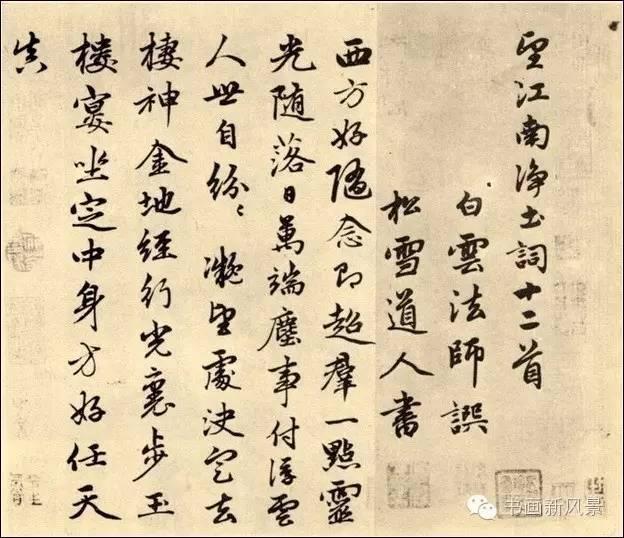 望江南净土詞十二首
白雲法師譔
松雪道人書
西方好隨念即超羣一點靈
光随落日萬端塵事付浮雲
人世自紛〻凝望處決定去
棲神金地經行光裏步玉
樓宴坐定中身方好任天
真
书画新风景